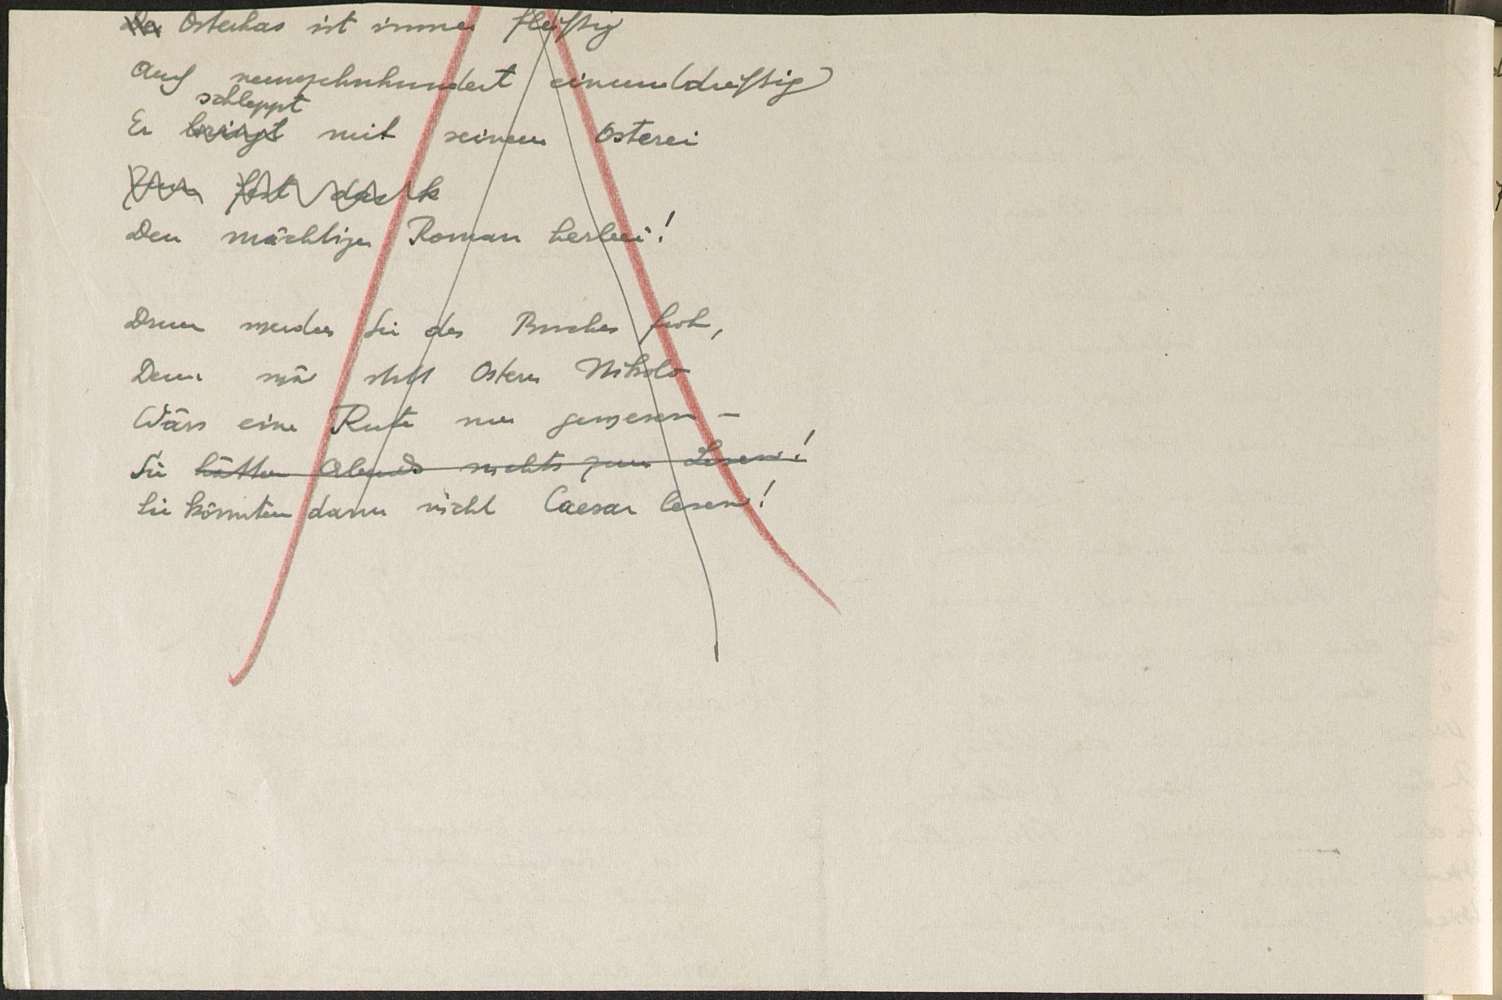 Der Osterhas ist immer fleißig
Auf neunzehnhundert einunddreißig
schleppt
Er bringt mit seinem Osterei
Zum Fest das k
Den mächtigen Roman herbei!
Drum werden Sie des Buches froh,
Denn wär statt Ostern Nikolo
Wärs eine Rute nur gewesen –
Sie hätten Abends nichts zum Lesen!
Sie könnten dann nicht Caesar lesen!